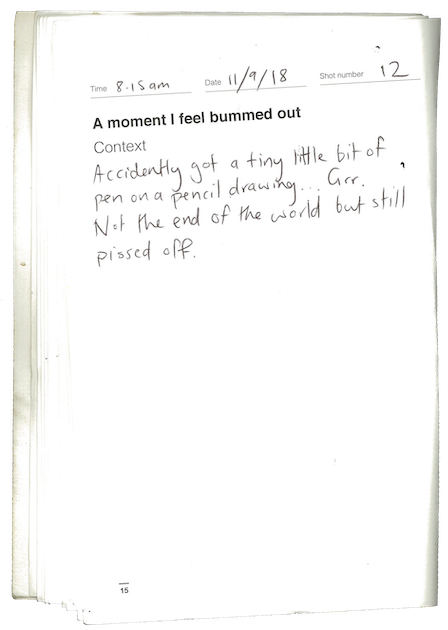 Time 8.15am Date 11/9/18 Shot number 12
A moment I feel bummed out
Context
Accidently got a tiny little bit of
pen on a pencil drawing... Grr.
Not the end of the world but still
pissed off.
15